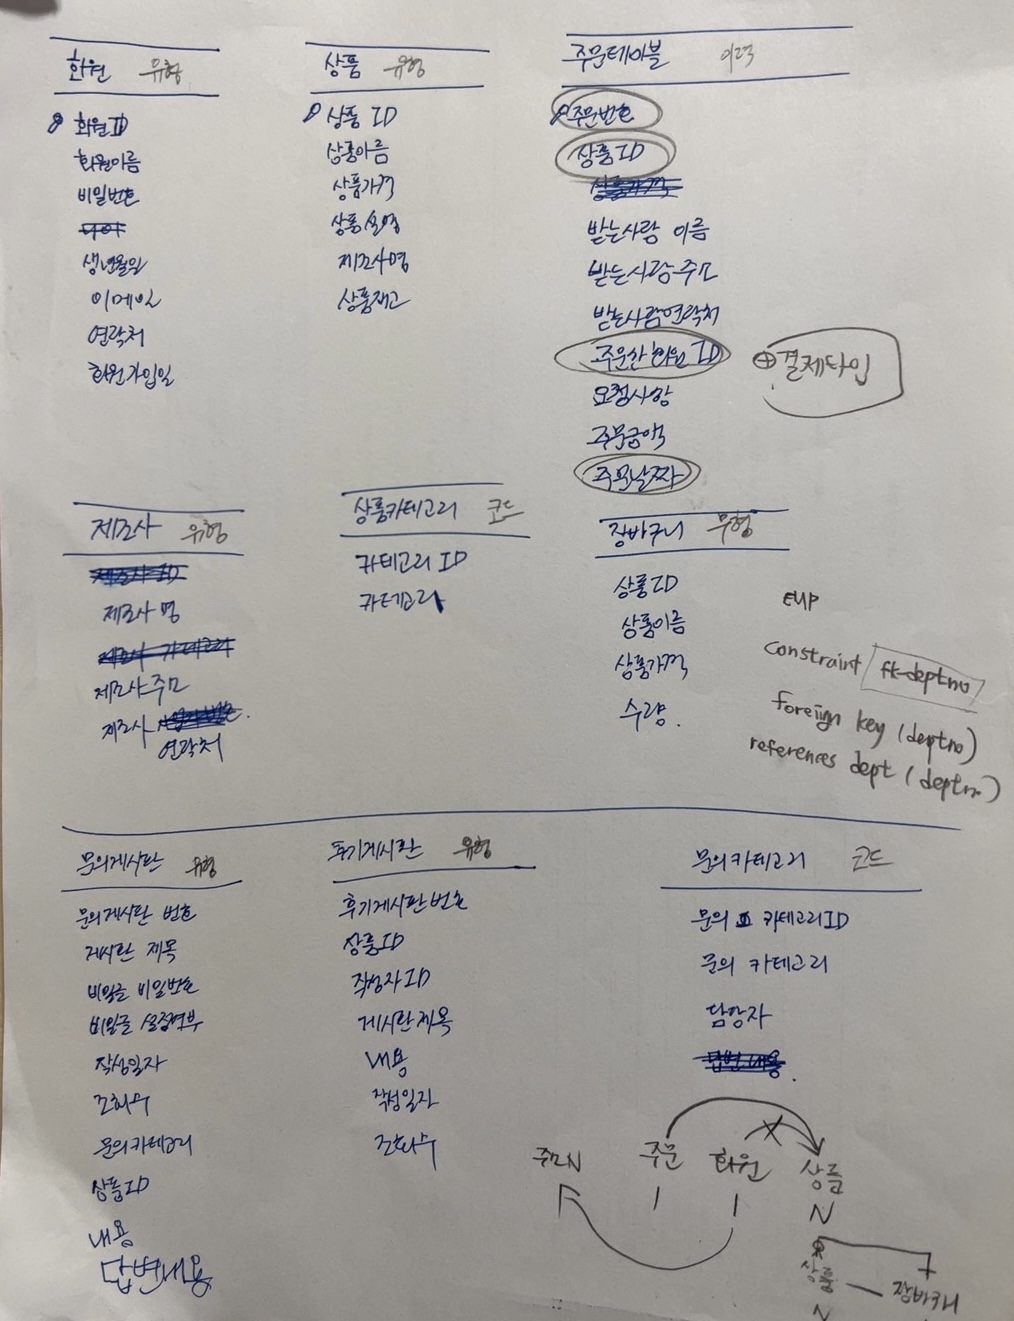 회원 유형
회원 ID
회원이름
비밀번호
나이
생년월일
이메일
연락처
회원가입일
상품 유형
상품 ID
상품이름
상품가격
상품설명
제조사명
상품재고
주문테이블 이력
주문번호
상품ID
상품가격
받는사람 이름
받는사람 주소
받는사람연락처
주문한 회원 ID
⊕결제타입
요청사항
주문금액
주문날짜
제조사 유형
제조사 ID
제조사 명
제조사 카테고리
제조사 주소
제조사
연락처
상품카테고리 코드
카테고리 ID
카테고리
장바구니 유형
상품ID
상품이름
상품가격
수량.
EMP
constraint fk-deptno
foreign key (deptno)
references dept (deptno)
문의게시판 유형
문의게시판 번호
게시판 제목
비밀글 비밀번호
비밀글 설정여부
작성일자
조회수
문의카테고리
상품ID
내용
답변내용
후기게시판 유형
후기게시판번호
상품ID
작성자 ID
게시판제목
내용
작성일자
조회수
문의카테고리 코드
문의 카테고리ID
문의 카테고리
담당자
답변내용.
주소N 주문 회원 상품
1 1 N
상품 장바구니
N